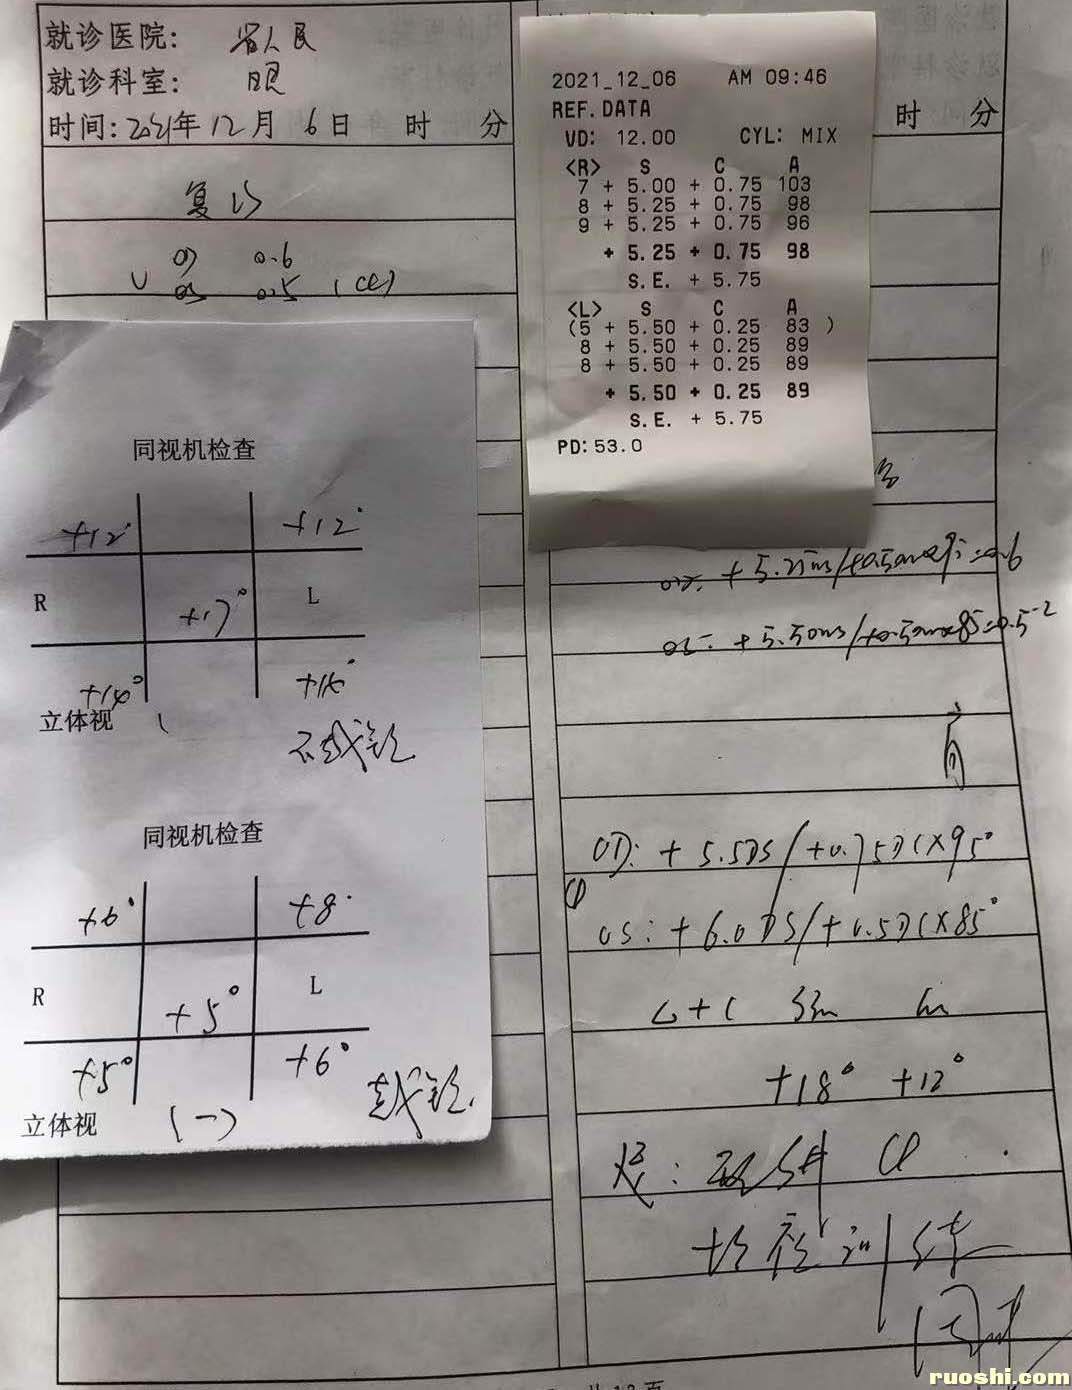 就诊医院: 省人民
就诊科室: 眼
时间: 2021年12月6日 时 分
复诊
V OD 0.6
OS 0.5 (CC)
同视机检查
+12° +12°
R +17° L
+14° +14°
立体视
不戴镜
同视机检查
+6° +8°
R +5° L
+5° +6°
立体视 (一) 戴镜
2021_12_06 AM 09:46
REF.DATA
VD: 12.00 CYL: MIX
<R> S C A
7 + 5.00 + 0.75 103
8 + 5.25 + 0.75 98
9 + 5.25 + 0.75 96
+ 5.25 + 0.75 98
S.E. + 5.75
<L> S C A
(5 + 5.50 + 0.25 83 )
8 + 5.50 + 0.25 89
8 + 5.50 + 0.25 89
+ 5.50 + 0.25 89
S.E. + 5.75
PD: 53.0
时 分
OD: +5.5DS/+0.75DC×95°
OS: +6.0DS/+0.5DC×85°
+18° +12°
训练
共12页
ruoshi.com